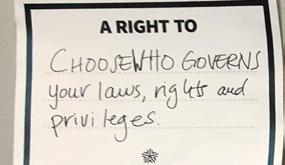 A RIGHT TO
CHOOSE WHO GOVERNS
your laws, rights and
privileges.